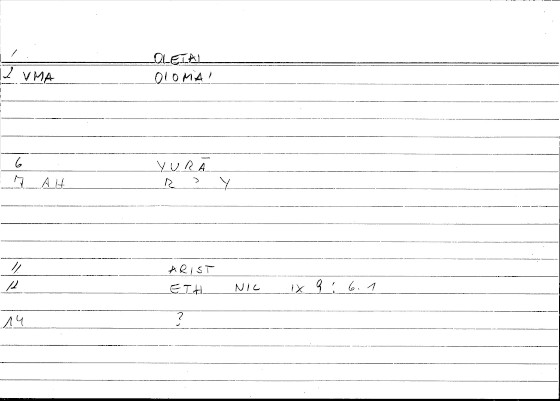 1 OLETAI
2 VMA OIOMAI
6 YURĀ
7 AH R > Y
11 ARIST
12 ETH NIC IX 9 : 6.1
14 ?